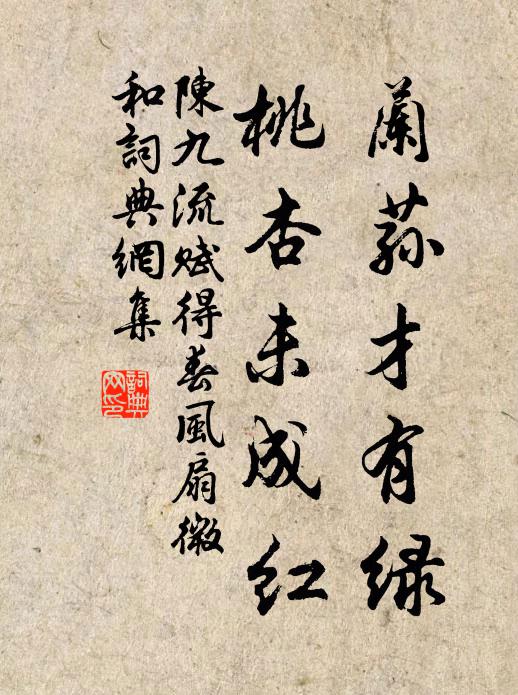 蘭蓀才有綠
桃杏未成紅
陳九流賦得春風扇微
和詞典網集
詞典網印